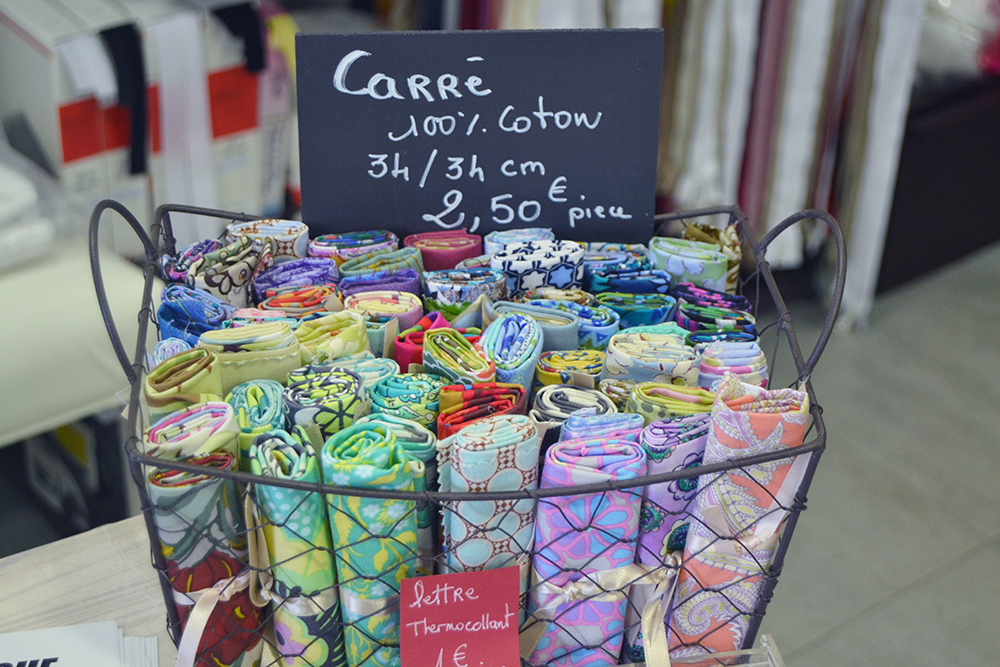 CARRÉ
100% Coton
34/34 cm
2,50€ piece
lettre
Thermocollant
1€